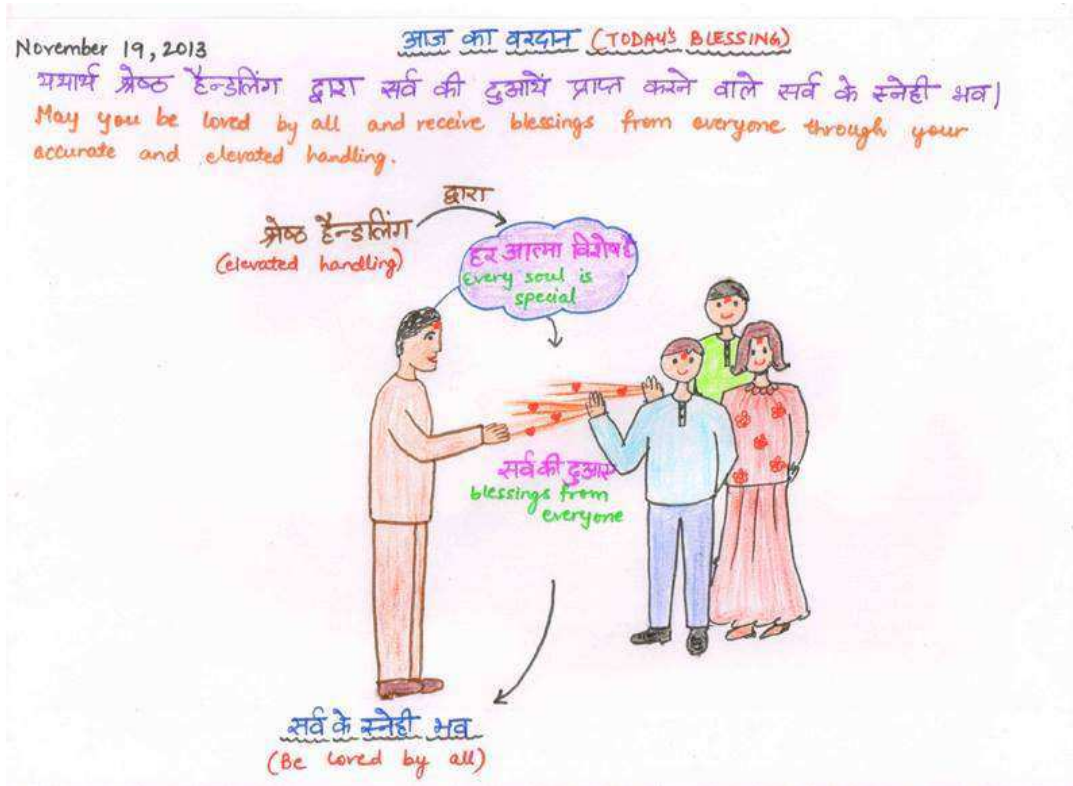 November 19, 2013
आज का वरदान (TODAY'S BLESSING)
यथार्थ श्रेष्ठ हैन्डलिंग द्वारा सर्व की दुआयें प्राप्त करने वाले सर्व के स्नेही भव।
May you be loved by all and receive blessings from everyone through your
accurate and elevated handling.
द्वारा
श्रेष्ठ हैन्डलिंग
(elevated handling)
हर आत्मा विशेष है
Every soul is
special
सर्व की दुआएं
blessings from
everyone
सर्व के स्नेही भव
(Be loved by all)